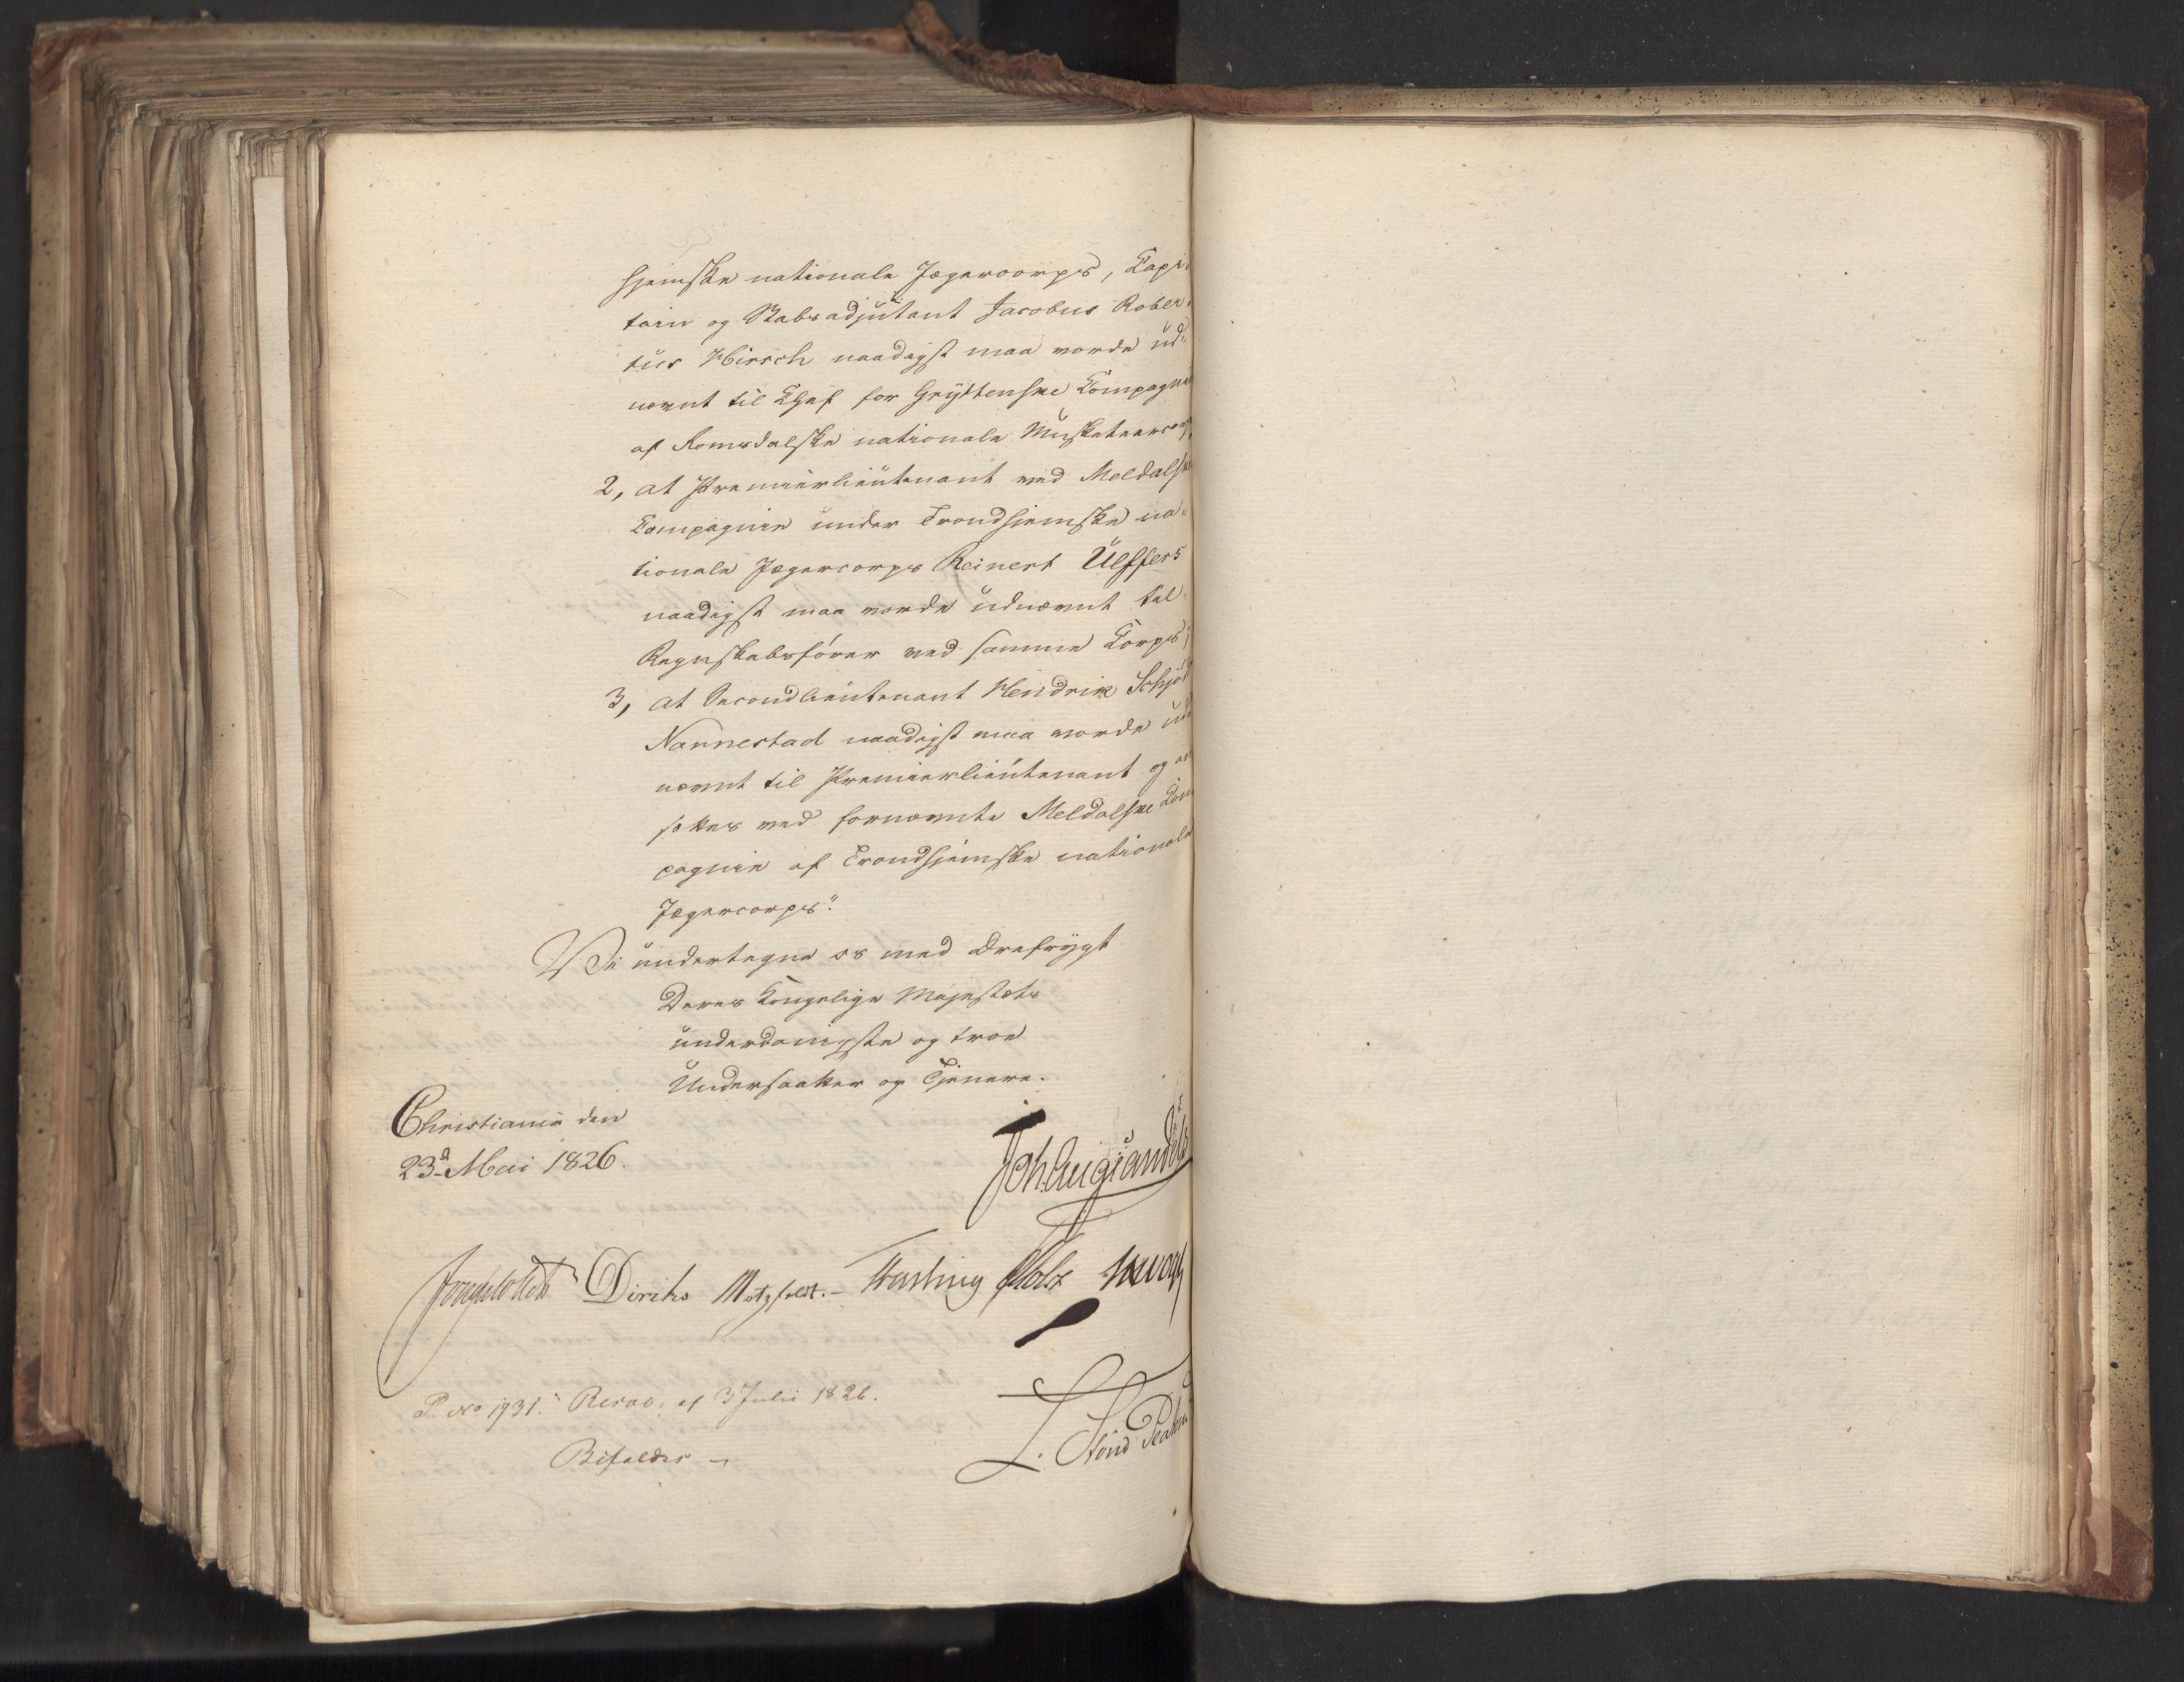 hjemske nationale Jægercorps, Capi-
tain og Stabsadjutant Jacobus Rober-
tus Hirsch naadigst maa vorde ud-
nævnt til Chef for Gryttenske Compagnie
af Romsdalske nationale Musketeercorps
2, at Premierlieutenant ved Meldalske
Compagnie under Trondhjemske na-
tionale Jægercorps Reinert Ulffers
naadigst maa vorde udnævnt til
Regnskabsfører ved samme Corps;
3, at Secondlieutenant Hendrik Schjöt
Nannestad naadigst maa vorde ud-
nævnt til Premierlieutenant og an-
sættes ved fornævnte Meldalske Com-
pagnie af Trondhjemske nationale
Jægercorps".
Vi undertegne os med Ærefrygt
Deres Kongelige Majestæts
underdanigste og troe
Undersaatter og Tjenere.
Christiania den
23d Mai 1826.
Joh. Aug. Sandels
Diriks Motzfeldt. Fasting Holst
P. No 1931. Resol. af 3 Julii 1826.
Bifaldes